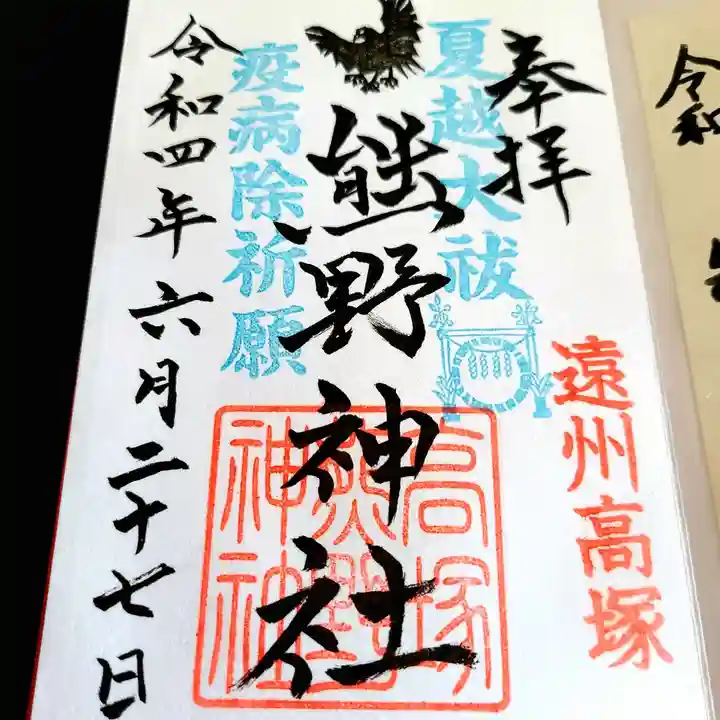 奉拝
遠州高塚
夏越大祓
熊野神社
高塚
熊野
神社
疫病除祈願
令和四年六月二十七日
令和